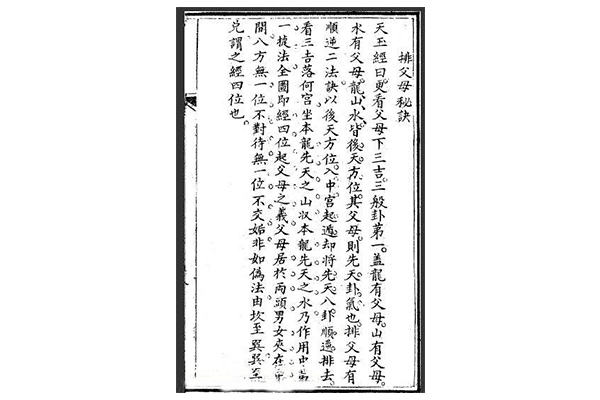 排父母秘訣
天玉經曰。更看父母下三吉。三般卦第一。蓋龍有父母。山有父母。
水有父母。龍山水皆後天方位。其父母則先天卦氣也。排父母有
順逆二法。訣以後天方位入中宮起遁。却将先天八卦順逆排去。
看三吉落何宮。坐本龍先天之山。収本龍先天之水。乃作用中第
一披法。全圖即經四位起父母之義。父母居於兩頭。男女夾在中
間。八方無一位不對待。無一位不交姤。非如偽法由坎至巽。巽至
兌。謂之經四位也。